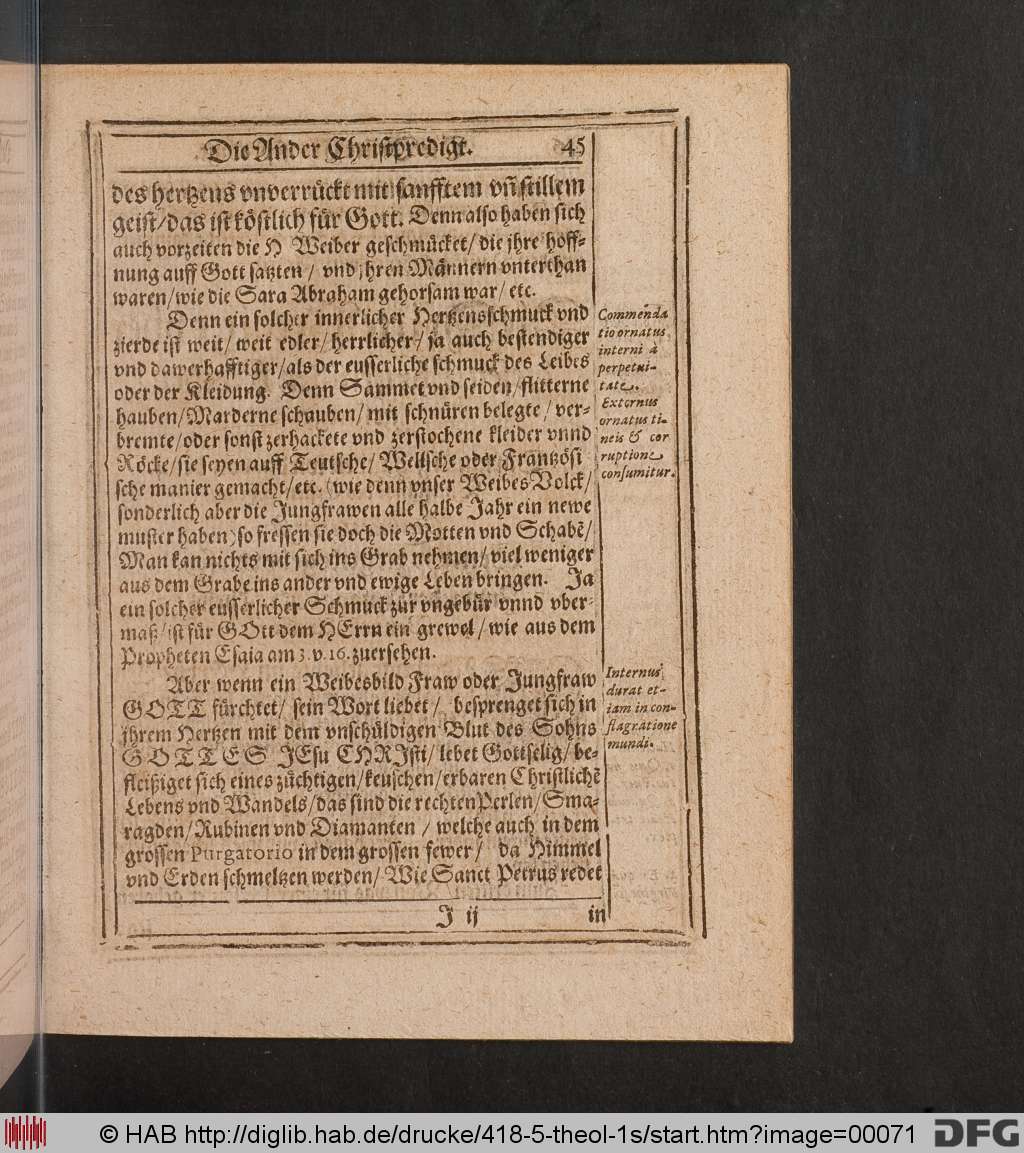 Die Ander Christpredigt. 45
des hertzens vnverrückt mit sanfftem vñ stillem
geist/das ist köstlich für Gott. Denn also haben sich
auch vorzeiten die H Weiber geschmücket/ die jhre hoff-
nung auff Gott satzten / vnd jhren Männern vnterthan
waren/wie die Sara Abraham gehorsam war/ etc.
Denn ein solcher innerlicher Hertzensschmuck vnd
zierde ist weit/ weit edler/ herrlicher/ ja auch bestendiger
vnd dawerhafftiger/als der eusserliche schmuck des Leibes
oder der Kleidung. Denn Sammet vnd seiden/flitterne
hauben/Marderne schauben/ mit schnüren belegte / ver-
bremte/oder sonst zerhackete vnd zerstochene kleider vnnd
Röcke/sie seyen auff Teutsche/ Wellsche oder Frantzösi
sche manier gemacht/etc. (wie denn vnser Weibes Volck/
sonderlich aber die Jungfrawen alle halbe Jahr ein newe
muster haben) so fressen sie doch die Motten vnd Schabẽ/
Man kan nichts mit sich ins Grab nehmen/ viel weniger
aus dem Grabe ins ander vnd ewige Leben bringen. Ja
ein solcher eusserlicher Schmuck zur vngebür vnnd vber-
maß/ ist für GOtt dem HErrn ein grewel / wie aus dem
Propheten Esaia am 3. v. 16. zuersehen.
Aber wenn ein Weibesbild Fraw oder Jungfraw
GOTT fürchtet/ sein Wort liebet / besprenget sich in
jhrem Hertzen mit dem vnschüldigen Blut des Sohns
GOTTES JEsu CHRIsti/ lebet Gottselig/ be-
fleißiget sich eines züchtigen/keuschen/erbaren Christlichẽ
Lebens vnd Wandels/das sind die rechten Perlen/ Sma-
ragden/Rubinen vnd Diamanten / welche auch in dem
grossen Purgatorio in dem grossen fewer/ da Himmel
vnd Erden schmeltzen werden/ Wie Sanct Petrus redet
J ij in
Commenda
tio ornatus
interni à
perpetui-
tate.
Externus
ornatus ti-
neis & cor
ruptione
consumitur.
Internus
durat et-
iam in con-
flagratione
mundi.
© HAB http://diglib.hab.de/drucke/418-5-theol-1s/start.htm?image=00071
DFG